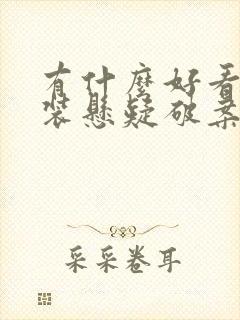 有什麼好看
裝懸疑破案
采采卷耳